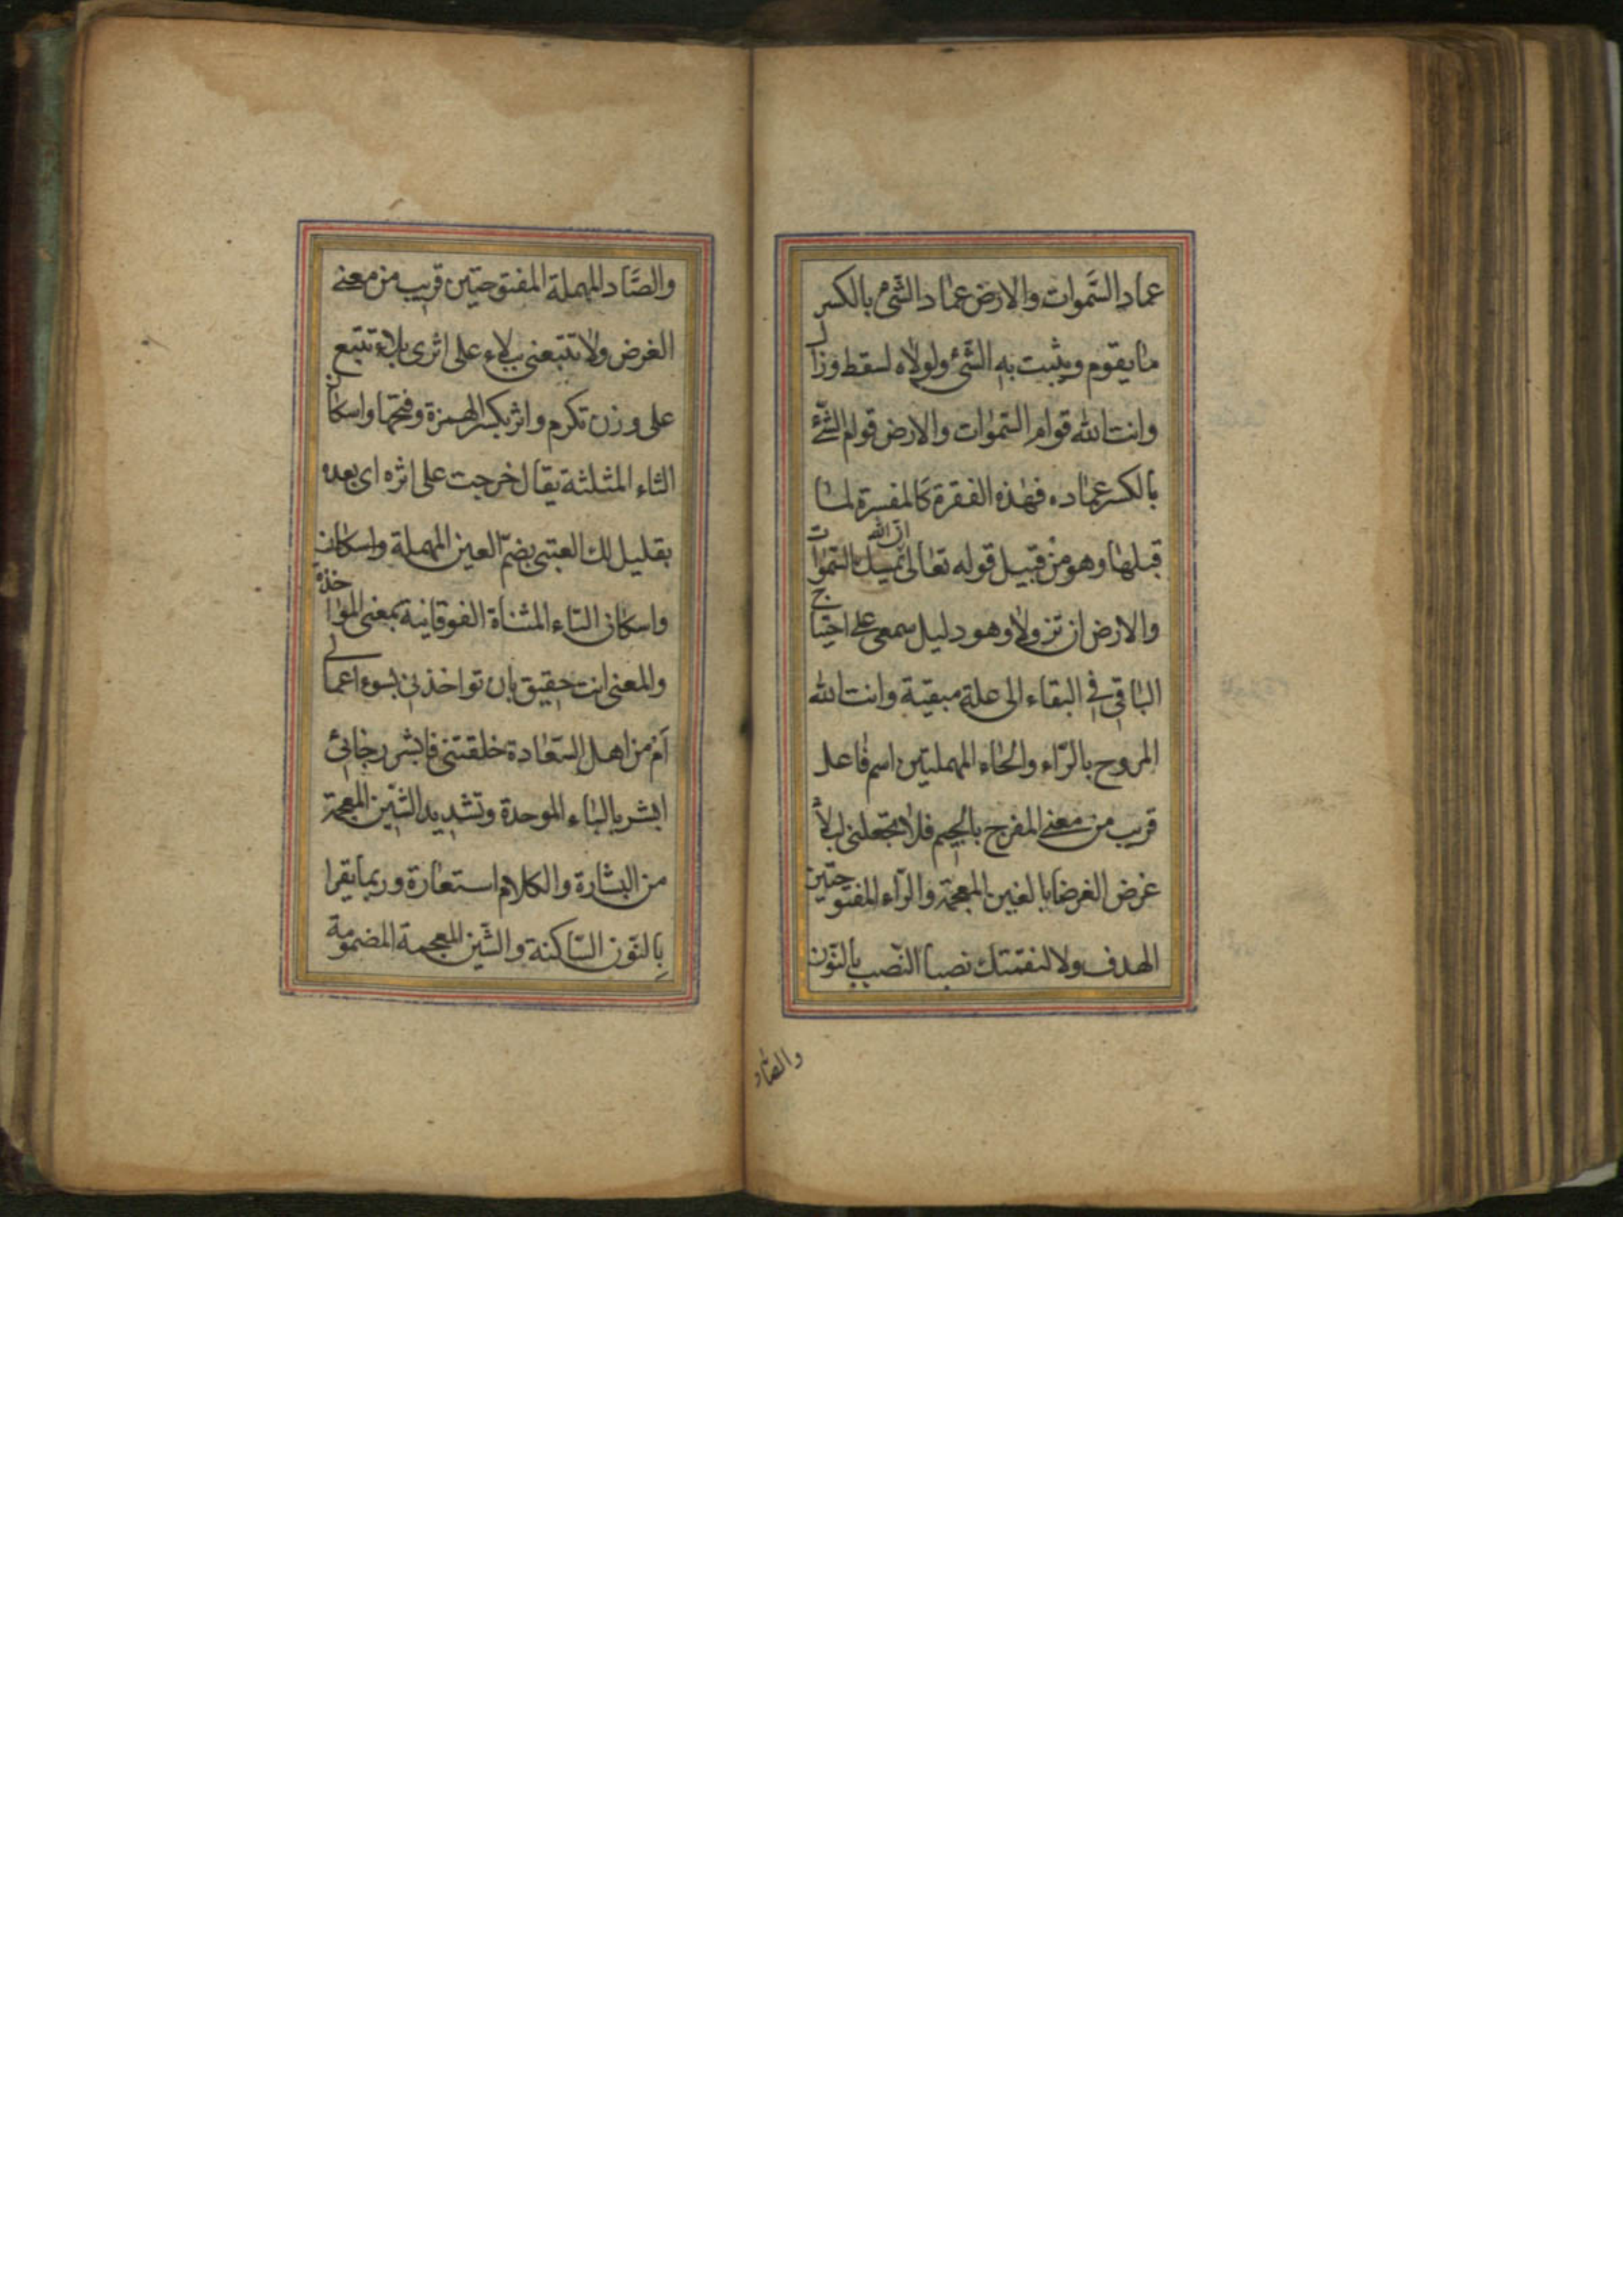 عماد السَّموات والارض عمٰاد الشئ بالكسر
مٰا يقوم ويثبت به الشئ ولولاه لسقط وزال
وانت الله قوام السّمٰوات والارض قوام الشئ
بالكسر عمٰاده فهٰذه الفقرة كالمفسرة لمٰا
قبلهٰا وهو من قبيل قوله تعٰالى انّ الله يمسك السّمٰوات
والارض ان تزولا وهو دليل سمعى على احتياج
البٰاقى فى البقاء الى علة مبقية وانت الله
المروح بالرّاء والحٰاء المهملتين اسم فٰاعل
قريب من معنى المفرج بالجيم فلا تجعلنى لبلاء
غرضا الغرض بالغين المعجمة والرّاء المفتوحتين
الهدف ولا لنقمتك نصبا النّصب بالنّون
والصّاد
والصَّاد المهملة المفتوحتين قريب من معنى
الغرض ولا تتبعنى ببلاء على اثرى بلاء تتبع
على وزن تكرم واثر بكسر الهمزة وفتحها واسكان
الثاء المثلثة يقال خرجت على اثره اى بعده
بقليل لك العتبى بضمّ العين المهملة واسكان
واسكان التاء المثناة الفوقانية بمعنى المؤاخذة
والمعنى انت حقيق بان تواخذنى بسوء اعمالى
أم من اهل السّعٰادة خلقتنى فابشر رجٰائى
ابشر بالبٰاء الموحدة وتشديد الشّين المعجمة
من البشارة والكلام استعٰارة وربما يقرا
بالنّون السّاكنة والشّين المعجمة المضمومة